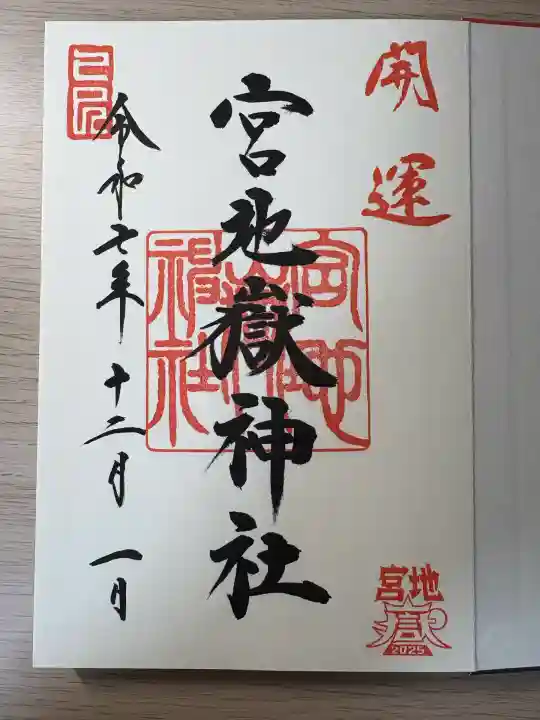 開運
宮地嶽神社
宮地嶽神社
令和七年十二月一日
宮地
嶽
2025